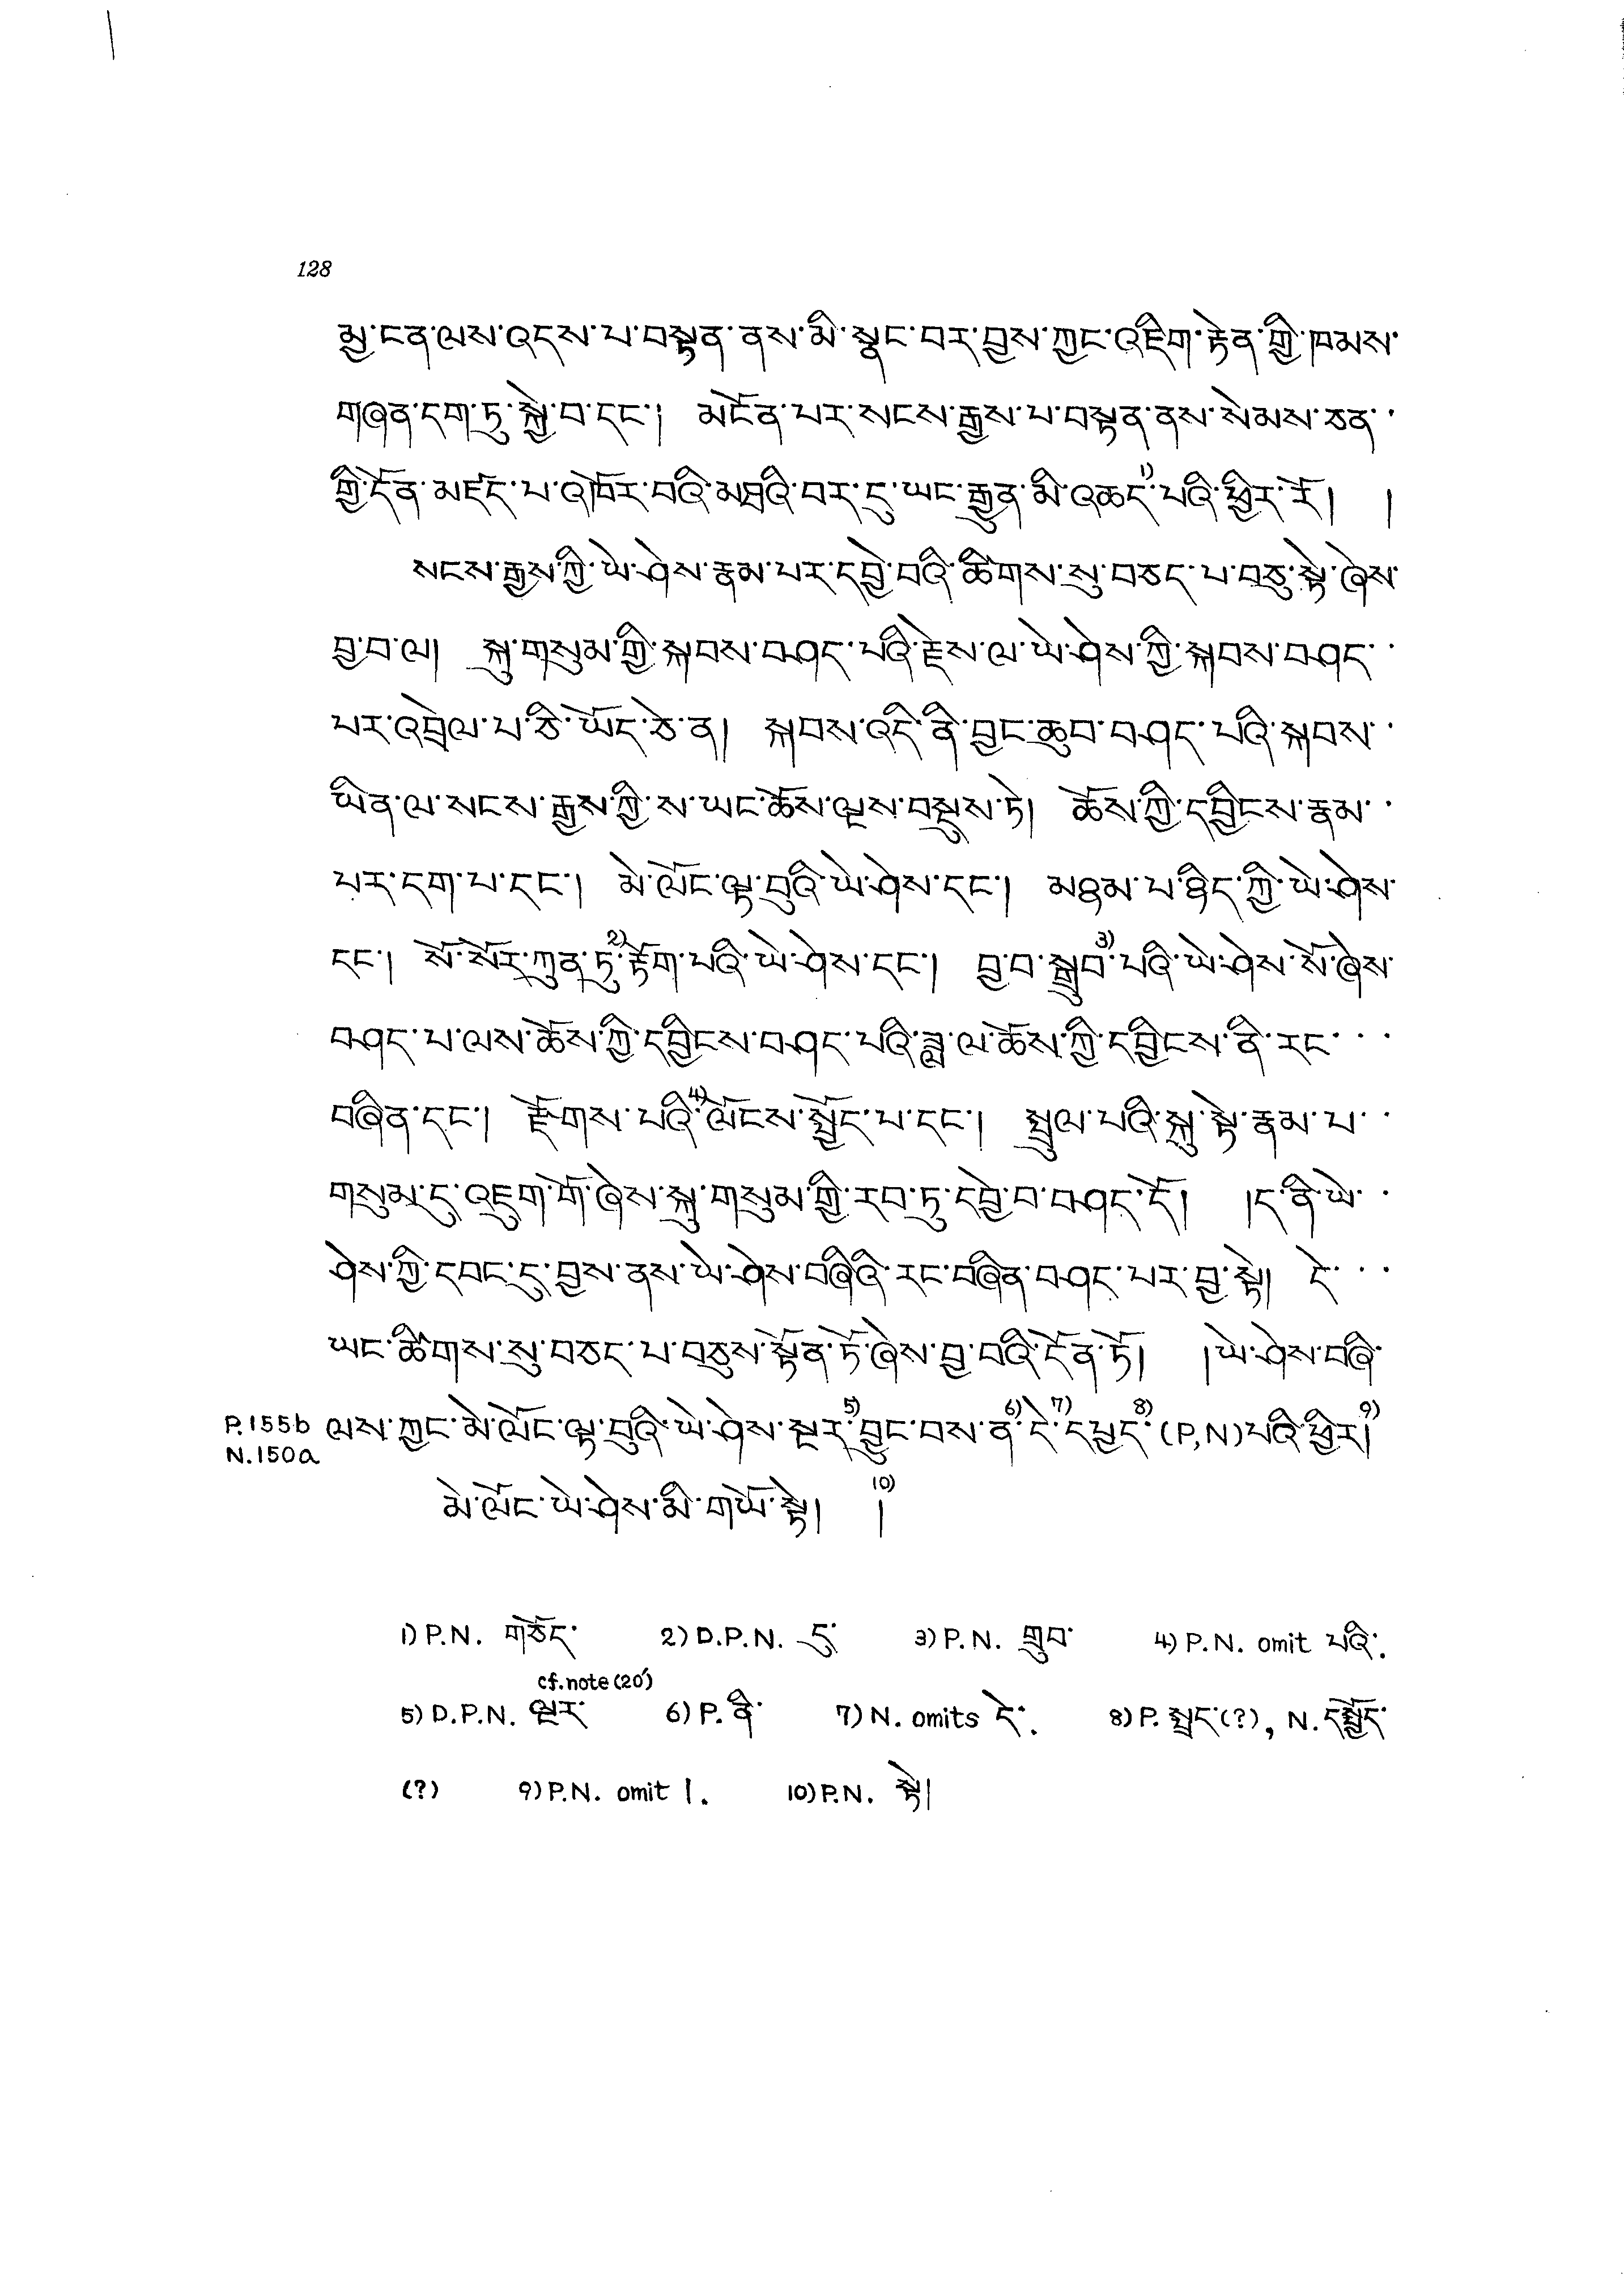 128
མྱ་ངན་ལས་འདས་པ་བསྟན་ནས་མི་སྣང་བར་བྱས་ཀྱང་འཇིག་རྟེན་གྱི་ཁམས་
གཞན་དག་ཏུ་སྐྱེ་བ་དང་། མངོན་པར་སངས་རྒྱས་པ་བསྟན་ནས་སེམས་ཅན་་
གྱི་དོན་མཛད་པ་འཁོར་བའི་མཐའི་བར་དུ་ཡང་རྒྱུན་མི་འཆད་1)་པའི་ཕྱིར་རོ། །
སངས་རྒྱས་ཀྱི་ཡེ་ཤེས་རྣམ་པར་དབྱེ་བའི་ཚིགས་སུ་བཅད་པ་བཅུ་སྟེ་ཞེས་
བྱ་བ་ལ། སྐུ་གསུམ་གྱི་སྐབས་བཤད་པའི་རྗེས་ལ་ཡེ་ཤེས་ཀྱི་སྐབས་བཤད་་
པར་འབྲེལ་པ་ཅི་ཡོད་ཅེ་ན། སྐབས་འདི་ནི་བྱང་ཆུབ་བཤད་པའི་སྐབས་་
ཡིན་ལ་སངས་རྒྱས་ཀྱི་ས་ཡང་ཆོས་ལྔས་བསྡུས་ཏེ། ཆོས་ཀྱི་དབྱིངས་རྣམ་་
པར་དག་པ་དང་། མེ་ལོང་ལྟ་བུའི་ཡེ་ཤེས་དང་། མཉམ་པ་ཉིད་ཀྱི་ཡེ་ཤེས་
དང་། སོ་སོར་ཀུན་ཏུ་2)རྟོག་པའི་ཡེ་ཤེས་དང་། བྱ་བ་སྒྲུབ་3)་པའི་ཡེ་ཤེས་སོ་ཞེས་
བཤད་པ་ལས་ཆོས་ཀྱི་དབྱིངས་བཤད་པའི་ཟླ་ལ་ཆོས་ཀྱི་དབྱིངས་ནི་རང་་་
བཞིན་དང་། རྫོགས་པའི་4)ལོངས་སྤྱོད་པ་དང་། སྤྲུལ་པའི་སྐུ་སྟེ་རྣམ་པ་་
གསུམ་དུ་འཇུག་གོ་ཞེས་སྐུ་གསུམ་གྱི་རབ་ཏུ་དབྱེ་བ་བཤད་དོ། །ད་ནི་ཡེ་་
ཤེས་ཀྱི་དབང་དུ་བྱས་ནས་ཡེ་ཤེས་བཞིའི་རང་བཞིན་བཤད་པར་བྱ་སྟེ། དེ་་་
ཡང་ཚིགས་སུ་བཅད་པ་བཅུས་སྟོན་ཏོ་ཞེས་བྱ་བའི་དོན་ཏོ། །ཡེ་ཤེས་བཞི་
P.155b ལས་ཀྱང་མེ་ལོང་ལྟ་བུའི་ཡེ་ཤེས་སྔར་5)་བྱུང་བས་ན་6)་དེ་7)་དཔྱད་8)་(P,N)པའི་ཕྱིར།9)
N.150a
མེ་ལོང་ཡེ་ཤེས་མི་གཡོ་སྟེ། །10)
1) P.N. གཅོད་ 2) D.P.N. དུ་ 3) P.N. གྲུབ་ 4) P.N. omit པའི་.
cf.note(20')
5) D.P.N. ལྔར་ 6) P. ནི་ 7) N. omits དེ་. 8) P. སྤྲད་(?), N. དསྤྱོད་
(?) 9) P.N. omit །. 10) P.N. སྟེ།